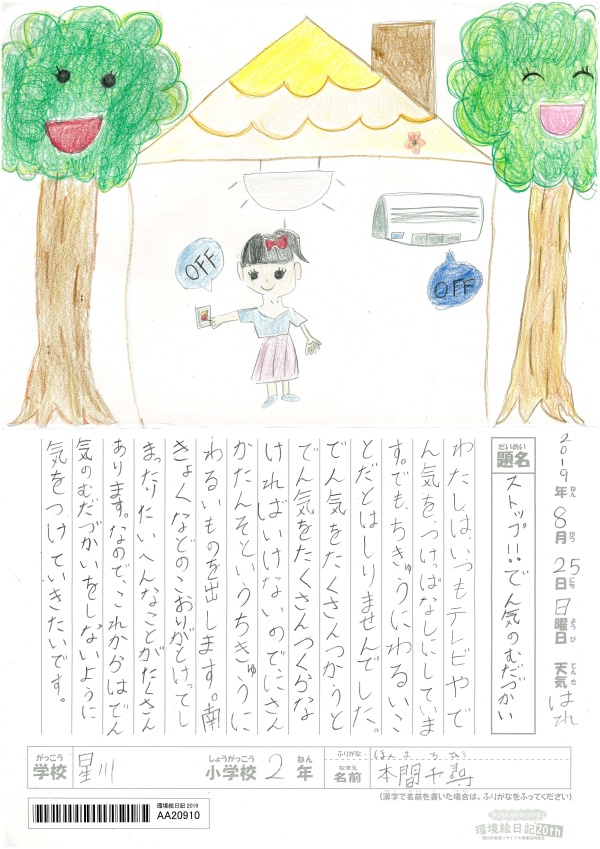 OFF
OFF
2019年8月25日日曜日 天気 はれ
ねん がつ にち ようび てんき
だいめい
題名
ストップ!!でん気のむだづかい
わたしは、いつもテレビやで
ん気を、つけっぱなしにしていま
す。でも、ちきゅうにわるいこ
とだとはしりませんでした。
でん気をたくさんつかうと
でん気をたくさんつくらな
ければいけないので、にさん
かたんそというちきゅうに
わるいものを出します。南
きょくなどのこおりがとけてし
まったりたいへんなことがたくさん
あります。なので、これからはでん
気のむだづかいをしないように
気をつけていきたいです。
がっこう しょうがっこう ねん
学校 星川 小学校 2年
ふりがな ほんま ちひろ
なまえ
名前 本間千尋
(漢字で名前を書いた場合は、ふりがなをふってください)
環境絵日記 2019
AA20910
環境絵日記20th